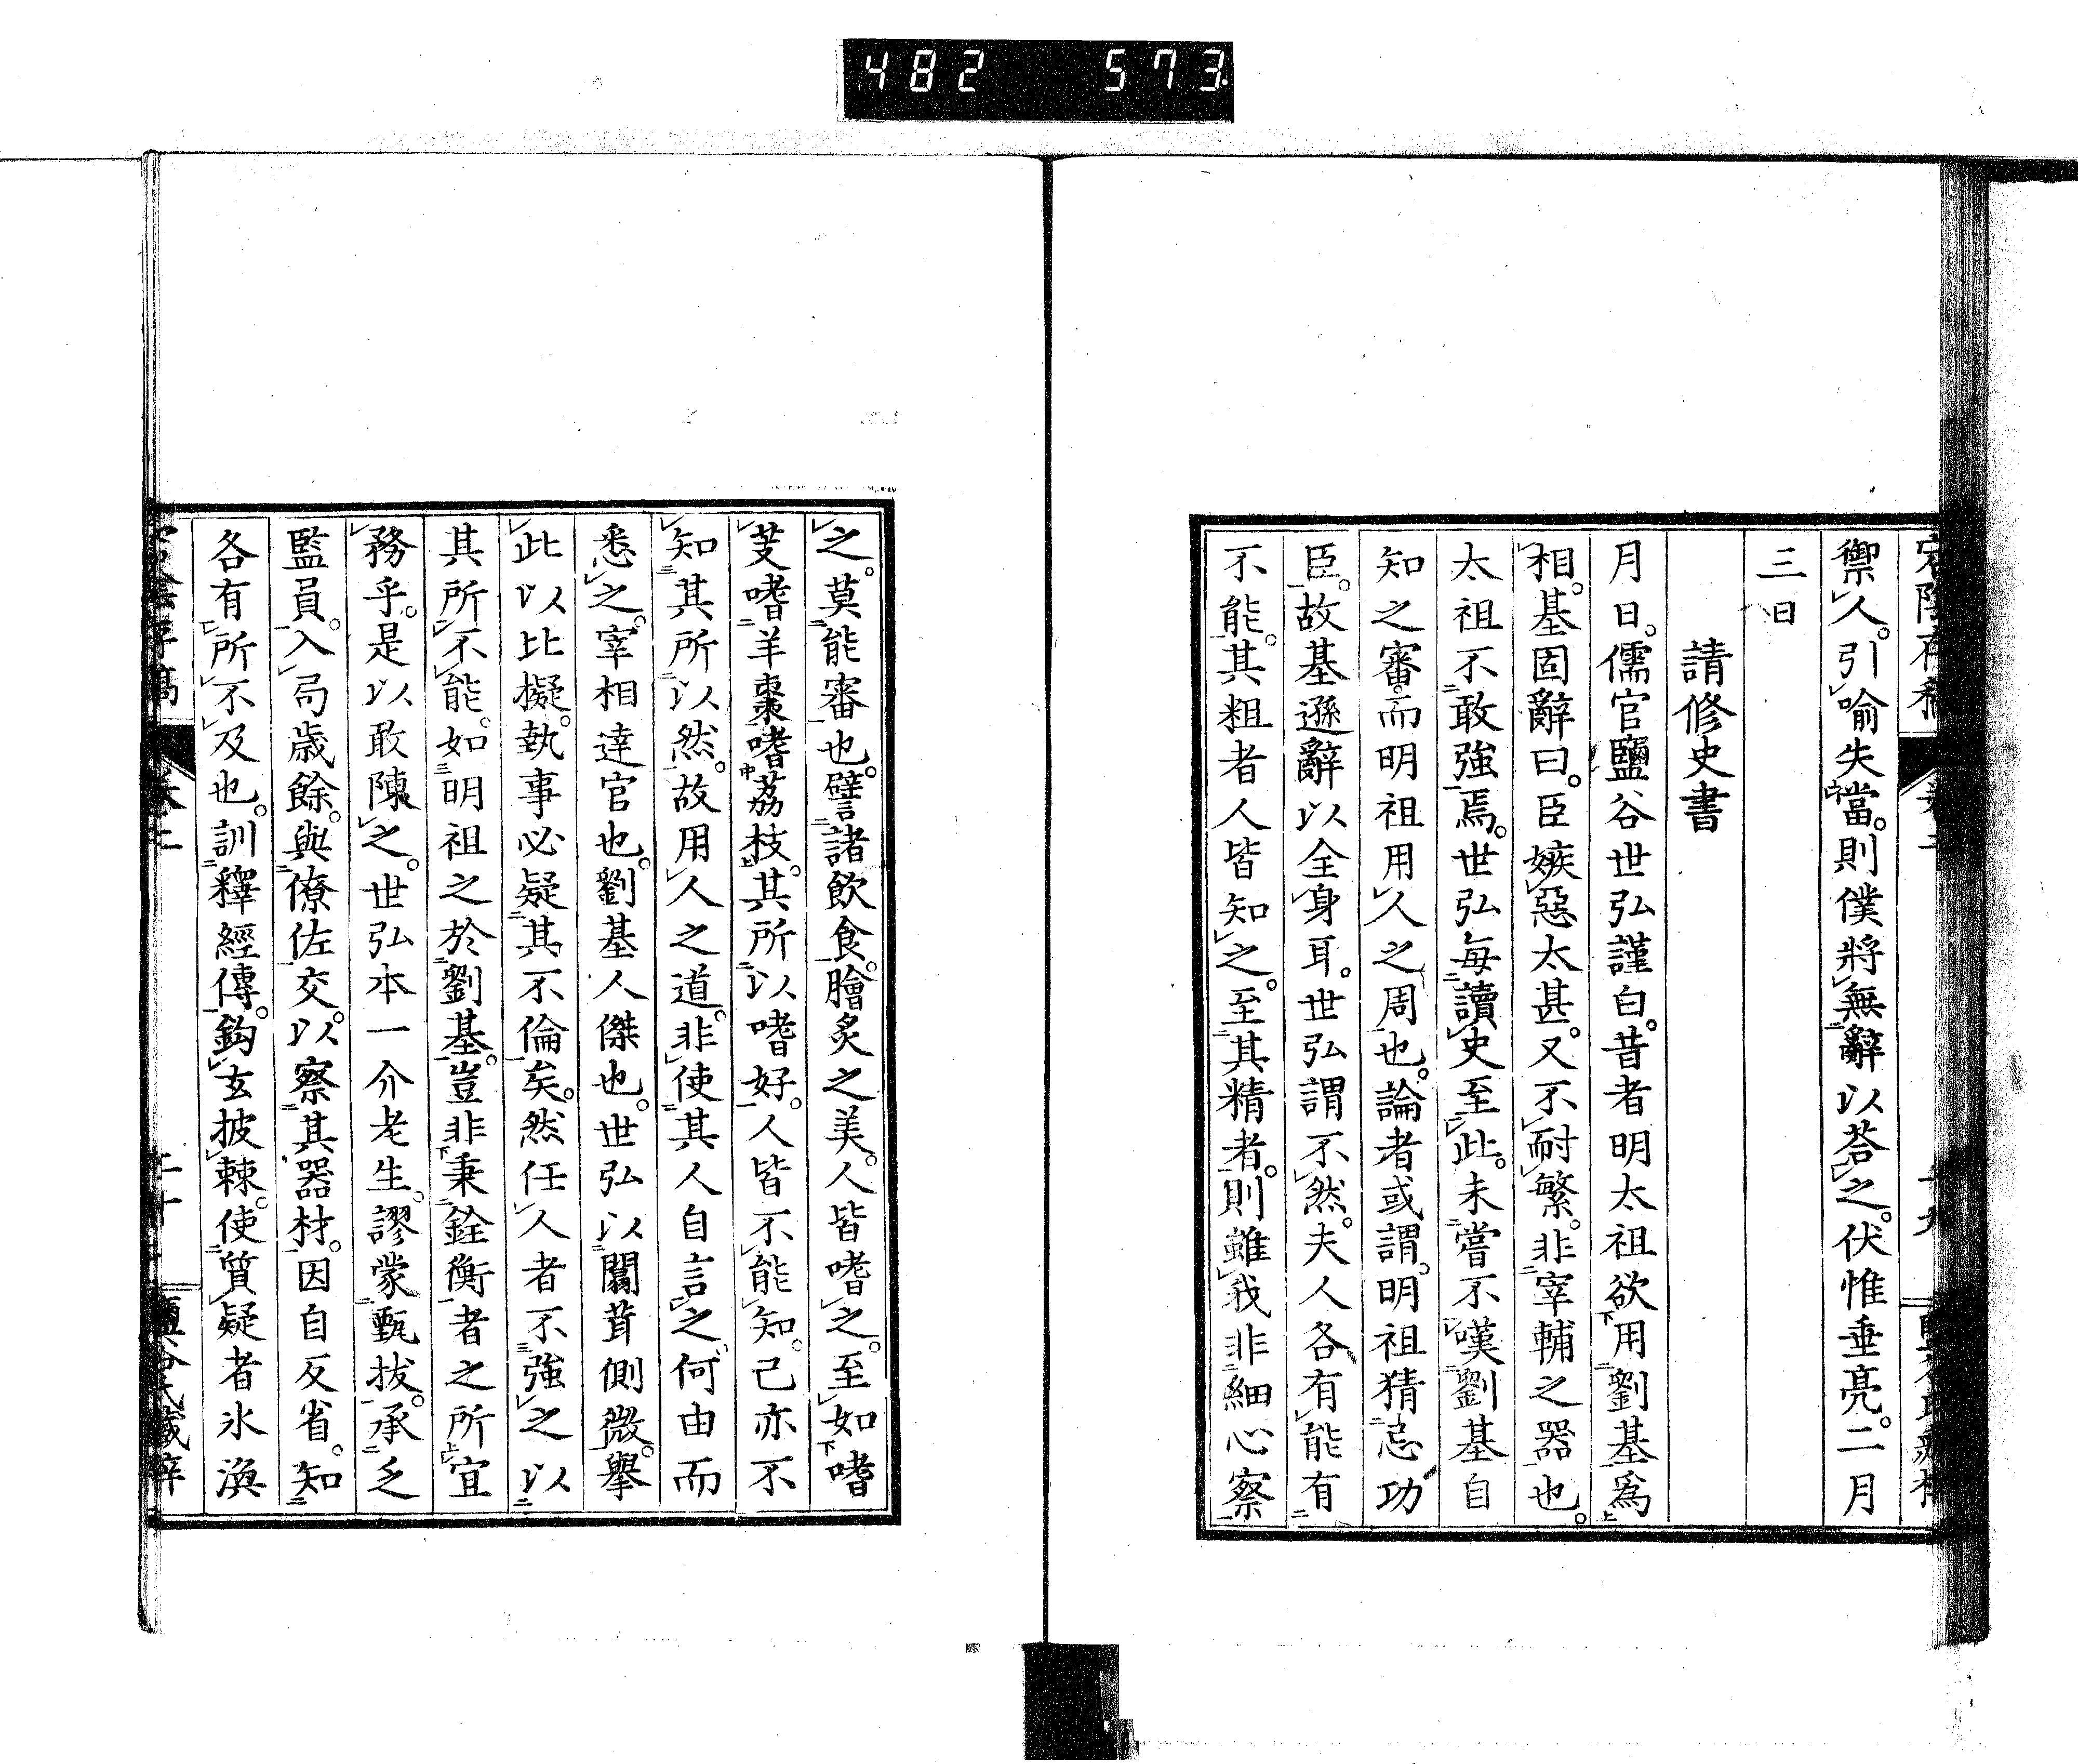 482 573
禦人。引喻失當。則僕將無辭以荅之。伏惟垂亮。二月
三日
請修史書
月日。儒官鹽谷世弘謹白。昔者明太祖欲用劉基爲
相。基固辭曰。臣嫉惡太甚。又不耐繁。非宰輔之器也。
太祖不敢強焉。世弘每讀史至此。未嘗不嘆劉基自
知之審。而明祖用人之周也。論者或謂。明祖猜忌功
臣。故基遜辭以全身耳。世弘謂不然。夫人各有能有
不能。其粗者人皆知之。至其精者。則雖我非細心察
之。莫能審也。譬諸飲食。膾炙之美。人皆嗜之。至如嗜
芰嗜羊棗嗜荔枝。其所以嗜好。人皆不能知。己亦不
知其所以然。故用人之道。非使其人自言之。何由而
悉之。宰相達官也。劉基人傑也。世弘以闒茸側微。擧
此以比擬。執事必疑其不倫矣。然任人者不強之以
其所不能。如明祖之於劉基。豈非秉銓衡者之所宜
務乎。是以敢陳之。世弘本一介老生。謬蒙甄拔。承乏
監員。入局歲餘。與僚佐交。以察其器材。因自反省。知
各有所不及也。訓釋經傳。鈎玄披棘。使質疑者氷渙